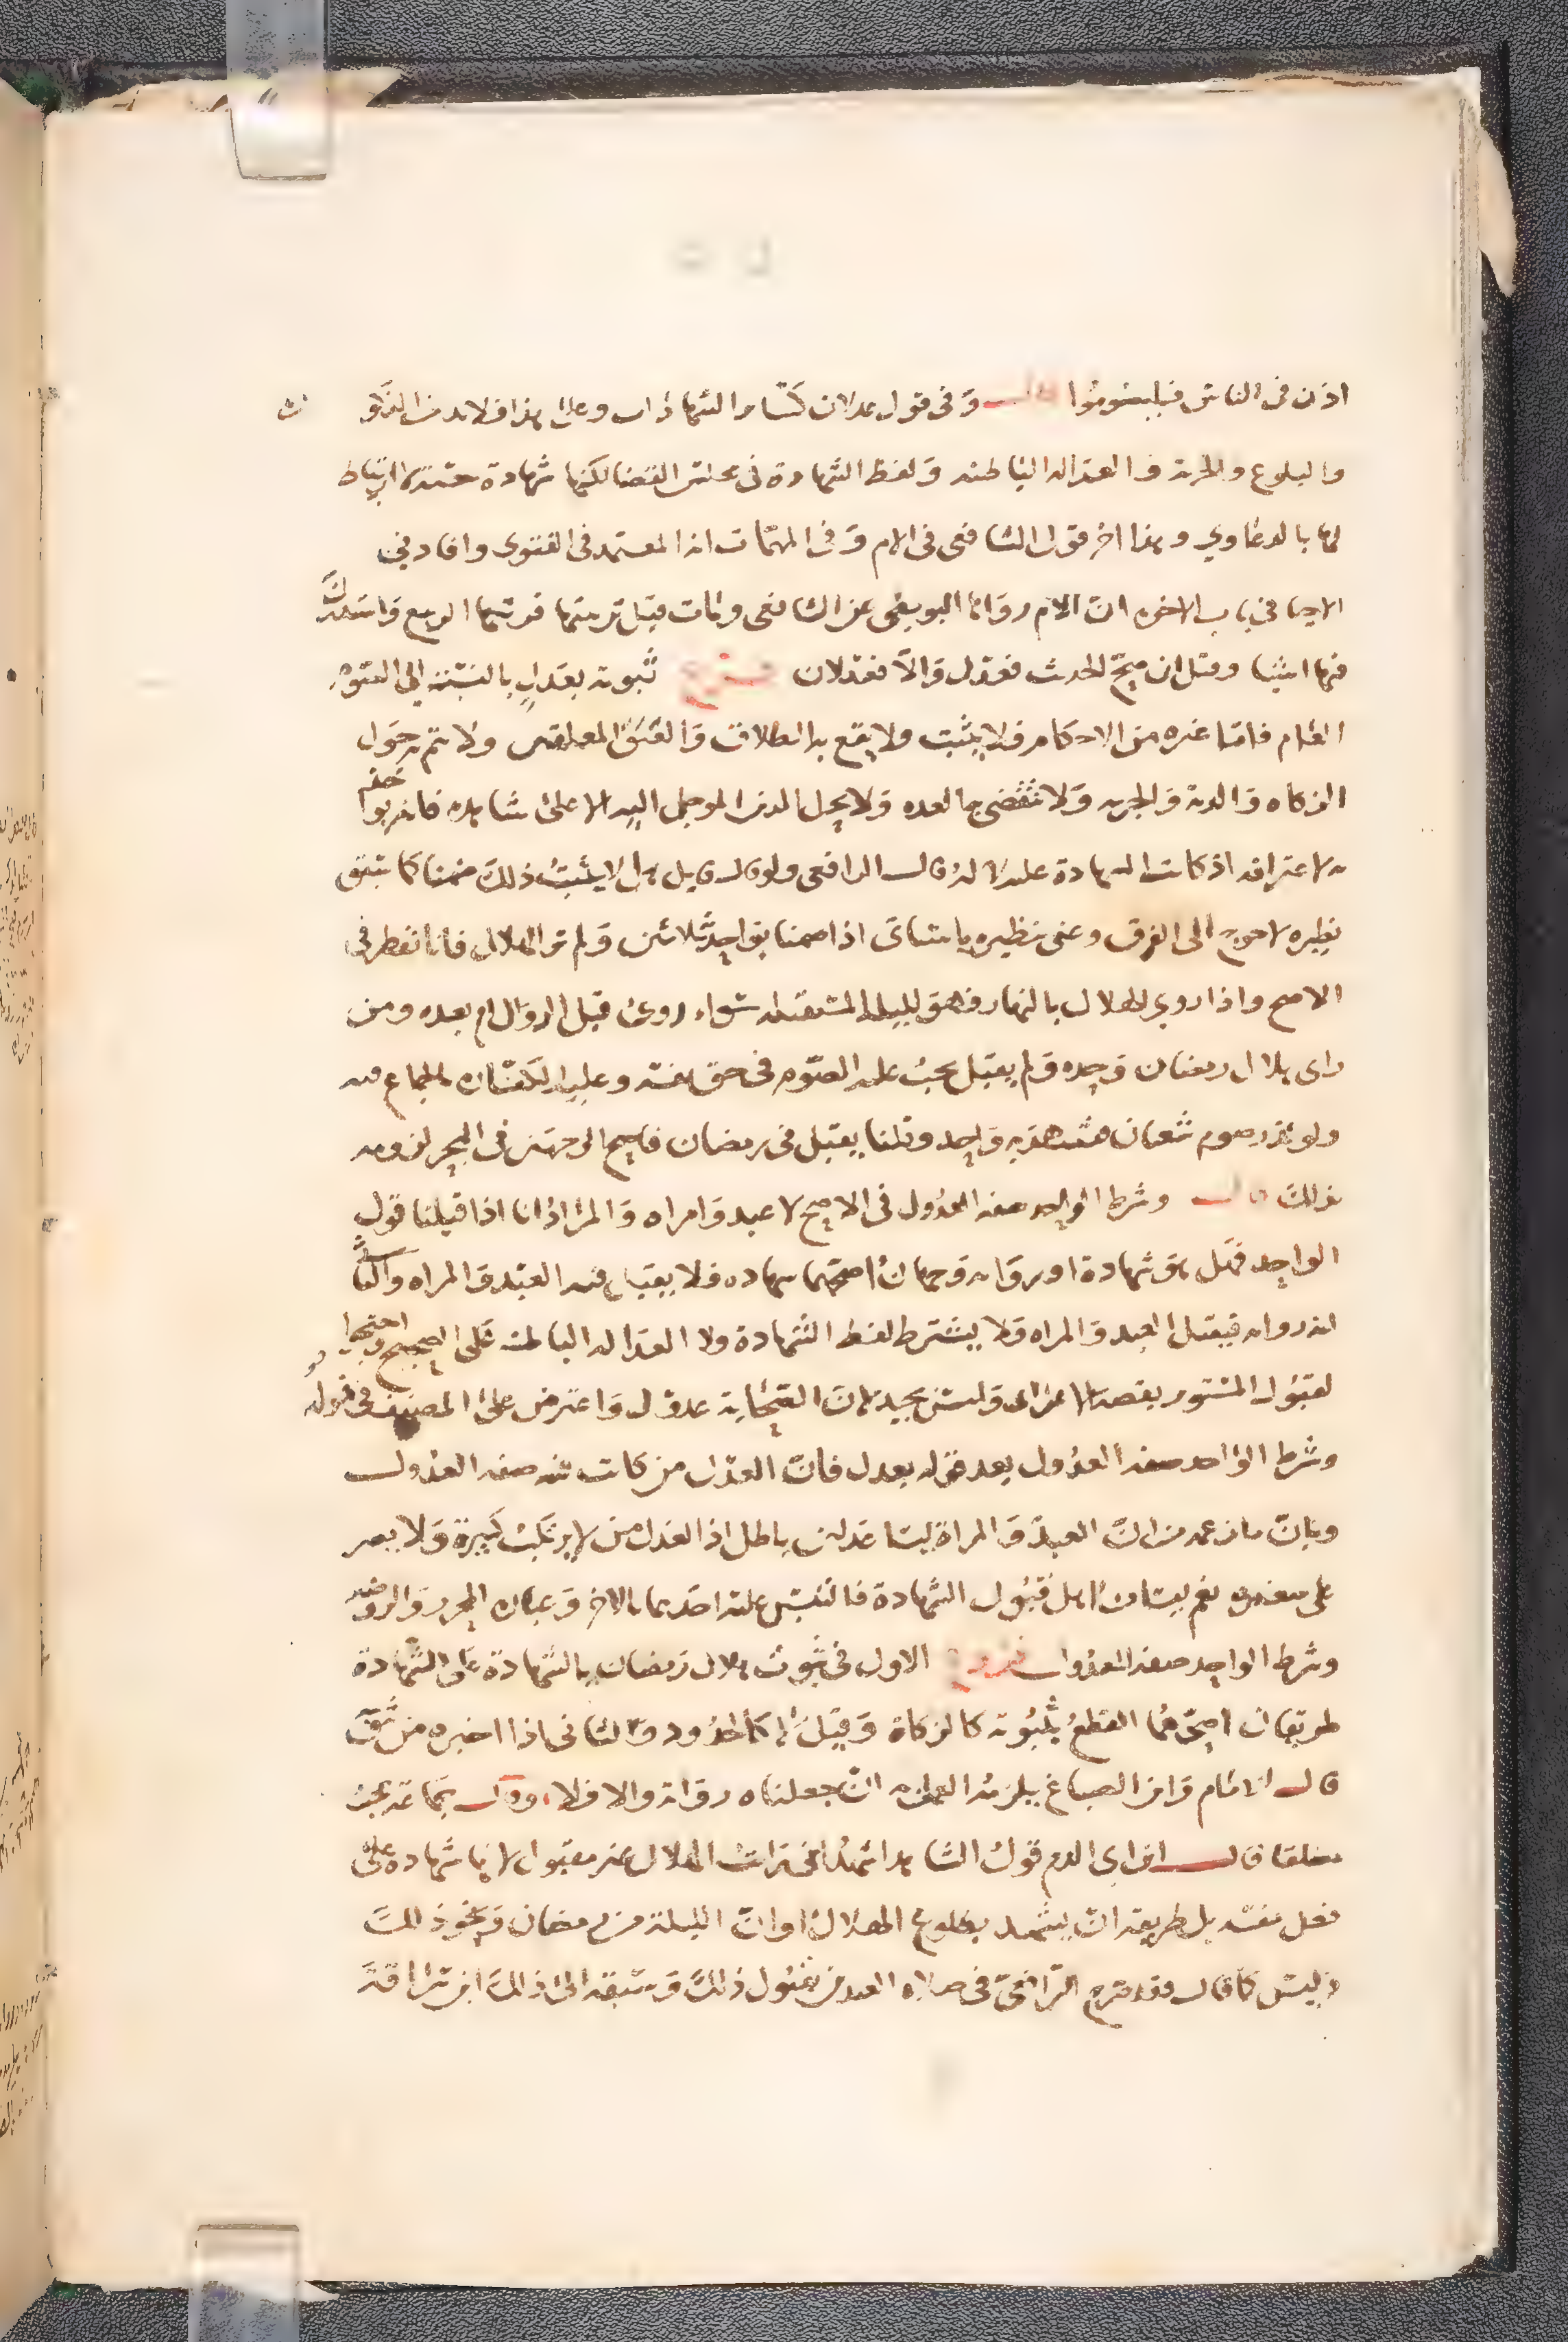 اذن في الناس فليصوموا قال وفي قول عدلان كسائر الشهادات وعلى هذا فلا بد من الذكورة
والبلوغ والحرية والعدالة الباطنة ولفظ الشهادة في مجلس القضا لكنها شهادة حسبة لا ارتباط
لها بالدعاوي وهذا اخر قولي الشافعي في الام وفي المهمات انه المعتمد في الفتوى وافاد في
الاحيا في باب الاخوة ان الام رواها البويطي عن الشافعي ومات قبل ترتيبها فرتبها الربيع واستدرك
فيها اشيا وقيل ان صح الحديث فعدل والا فعدلان فرع ثبوته بعدل بالنسبة الى الصوم
العام فاما غيره من الاحكام فلا يثبت ولا يقع به الطلاق والعتق المعلقين ولا يتم به حول
الزكاه والدية والجزية ولا تنقضي به العده ولا يحل الدين الموجل اليه الا على شاهده فانه يواخذ
به لاعترافه اذ كانت الشهادة عليه لا له قال الرافعي ولو قال قايل هل لا يثبت ذلك ضمنا كما سبق
نظيره لاحوج الى الفرق وعنى بنظيره ما سياتي اذا صمنا بواحد ثلاثين ولم نر الهلال فانا نفطر في
الاصح واذا روي الهلال بالنهار فهو لليلة المستقبلة سواء روئ قبل الزوال ام بعده ومن
راى هلال رمضان وحده ولم يقبل يجب عليه الصوم في حق نفسه وعليه الكفارة بالجماع فيه
ولو نذر صوم شعبان فشهد به واحد وقلنا يقبل في رمضان فاصح الوجهين في البحر لزومه
بذلك قال وشرط الواحد صفة العدول في الاصح لا عبد وامراه والمراد انا اذا قبلنا قول
الواحد فهل هو شهادة او رواية وجهان اصحهما شهاده فلا يقبل فيه العبد والمراه والثاني
انه رواية فيقبل العبد والمراه ولا يشترط لفظ الشهادة ولا العدالة الباطنة على الصحيح واحتجوا
لقبول المستور بقصة الاعرابي وليس بجيد فان الصحابة عدول واعترض على المصنف في قوله
وشرط الواحد صفة العدول بعد قوله بعدل فان العدل من كانت فيه صفة العدول
وبان ما زعمه من ان العبد والمراة ليسا عدلين باطل اذ العدل من لا يرتكب كبيرة ولا يصر
على صغيره نعم ليسا من اهل قبول الشهادة فالتبس عليه احدهما بالاخر وعبارة المحرر والروضه
وشرط الواحد صفة العدول فروع الاول في ثبوت هلال رمضان بالشهادة على الشهادة
طريقان اصحهما القطع بثبوته كالزكاة وقيل لا كالحدود والثاني اذا اخبره من يثق
قال الامام وابن الصباغ يلزمه العمل به ان جعلناه رواية والا فلا وقال جماعة يجب
مطلقا قال ابن ابي الدم قول الشاهد اشهد اني رايت الهلال غير مقبول لانها شهادة على
فعل نفسه بل طريقه ان يشهد بطلوع الهلال او ان الليلة من رمضان ونحو ذلك
وليس كما قال فقد صرح الرافعي في صلاة العيد من بقبول ذلك وسبقه الى ذلك ابن سراقة